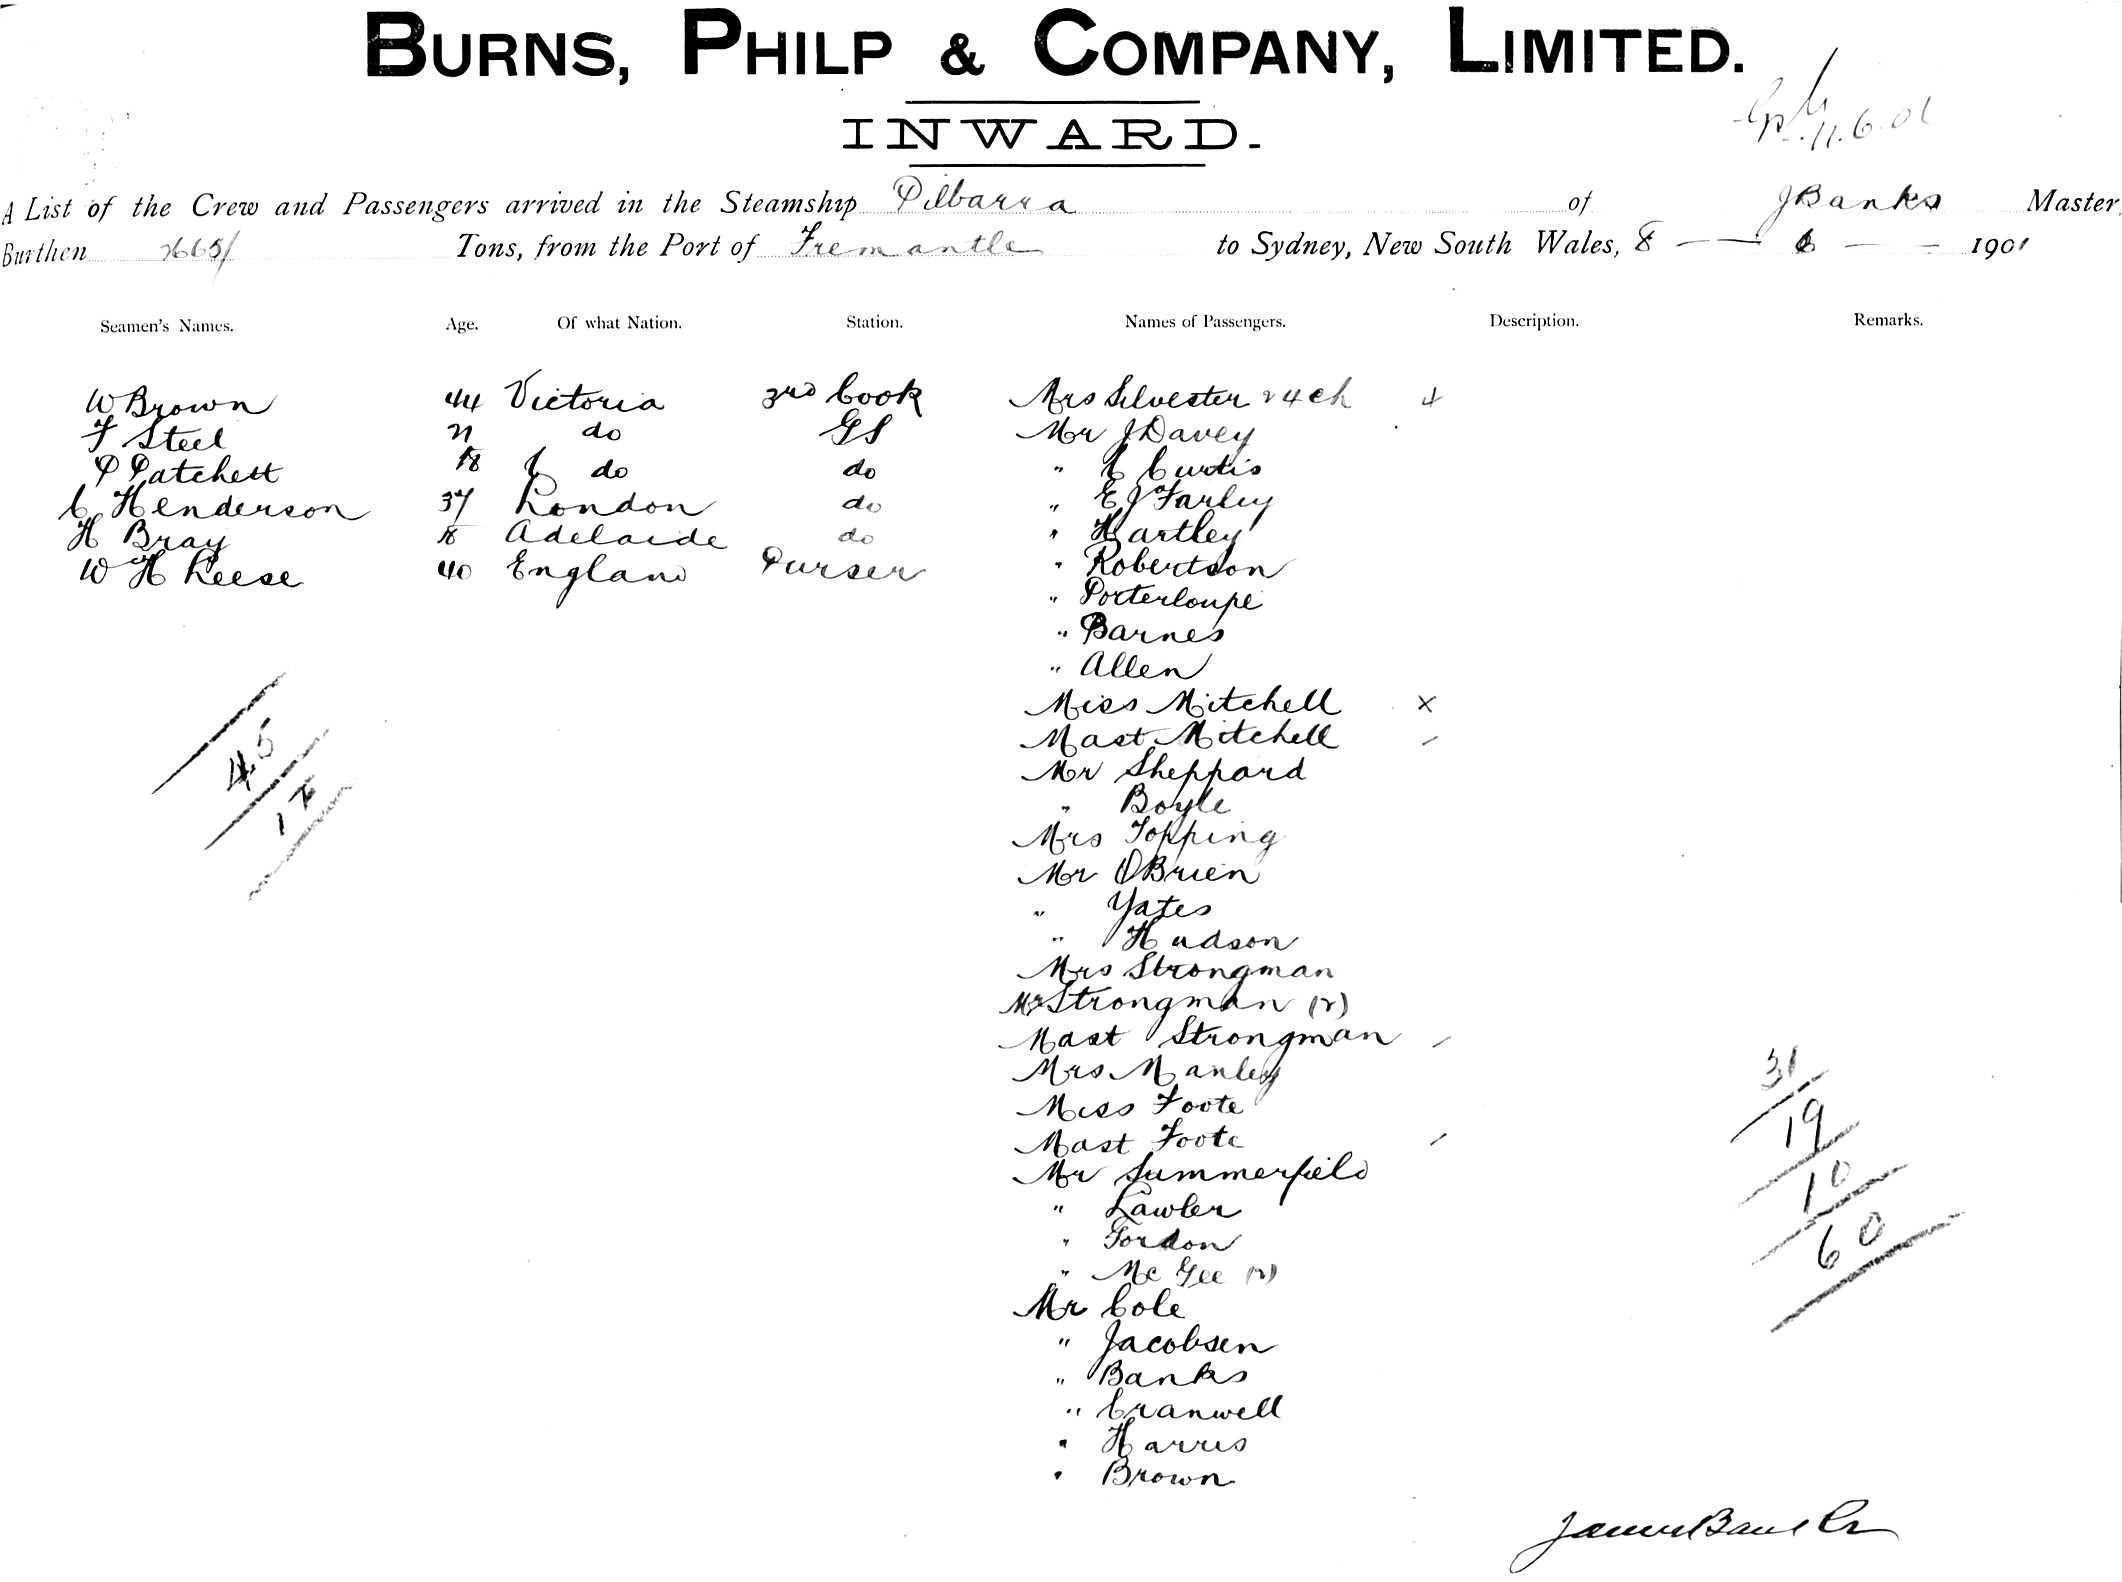 BURNS, PHILP & COMPANY, LIMITED.
INWARD.
11.6.01
A List of the Crew and Passengers arrived in the Steamship Pilbarra of J Banks Master,
Burthen 2665/ Tons, from the Port of Fremantle to Sydney, New South Wales, 8 — 6 — 1901
Seamen's Names. Age. Of what Nation. Station. Names of Passengers. Description. Remarks.
W Brown 44 Victoria 3rd Cook Mrs Silvester & 4 ch 4
F Steel 21 do GS Mr J Davey
P Patchett 18 do do " C Curtis
C Henderson 37 London do " E J Farley
H Bray 18 Adelaide do " Hartley
W H Leese 40 England Purser " Robertson
" Porterloupe
" Barnes
" Allen
Miss Mitchell x
Mast Mitchell /
Mr Sheppard
" Boyle
Mrs Topping
Mr OBrien
" Yates
" Hudson
Mrs Strongman
Mr Strongman (2)
Mast Strongman /
Mrs Manley
Miss Foote
Mast Foote /
Mr Summerfield
" Lawler
" Gordon
" Mc Gee (2)
Mr Cole
" Jacobsen
" Banks
" Cranwell
" Harris
" Brown
45
31
19
10
60
James Banks